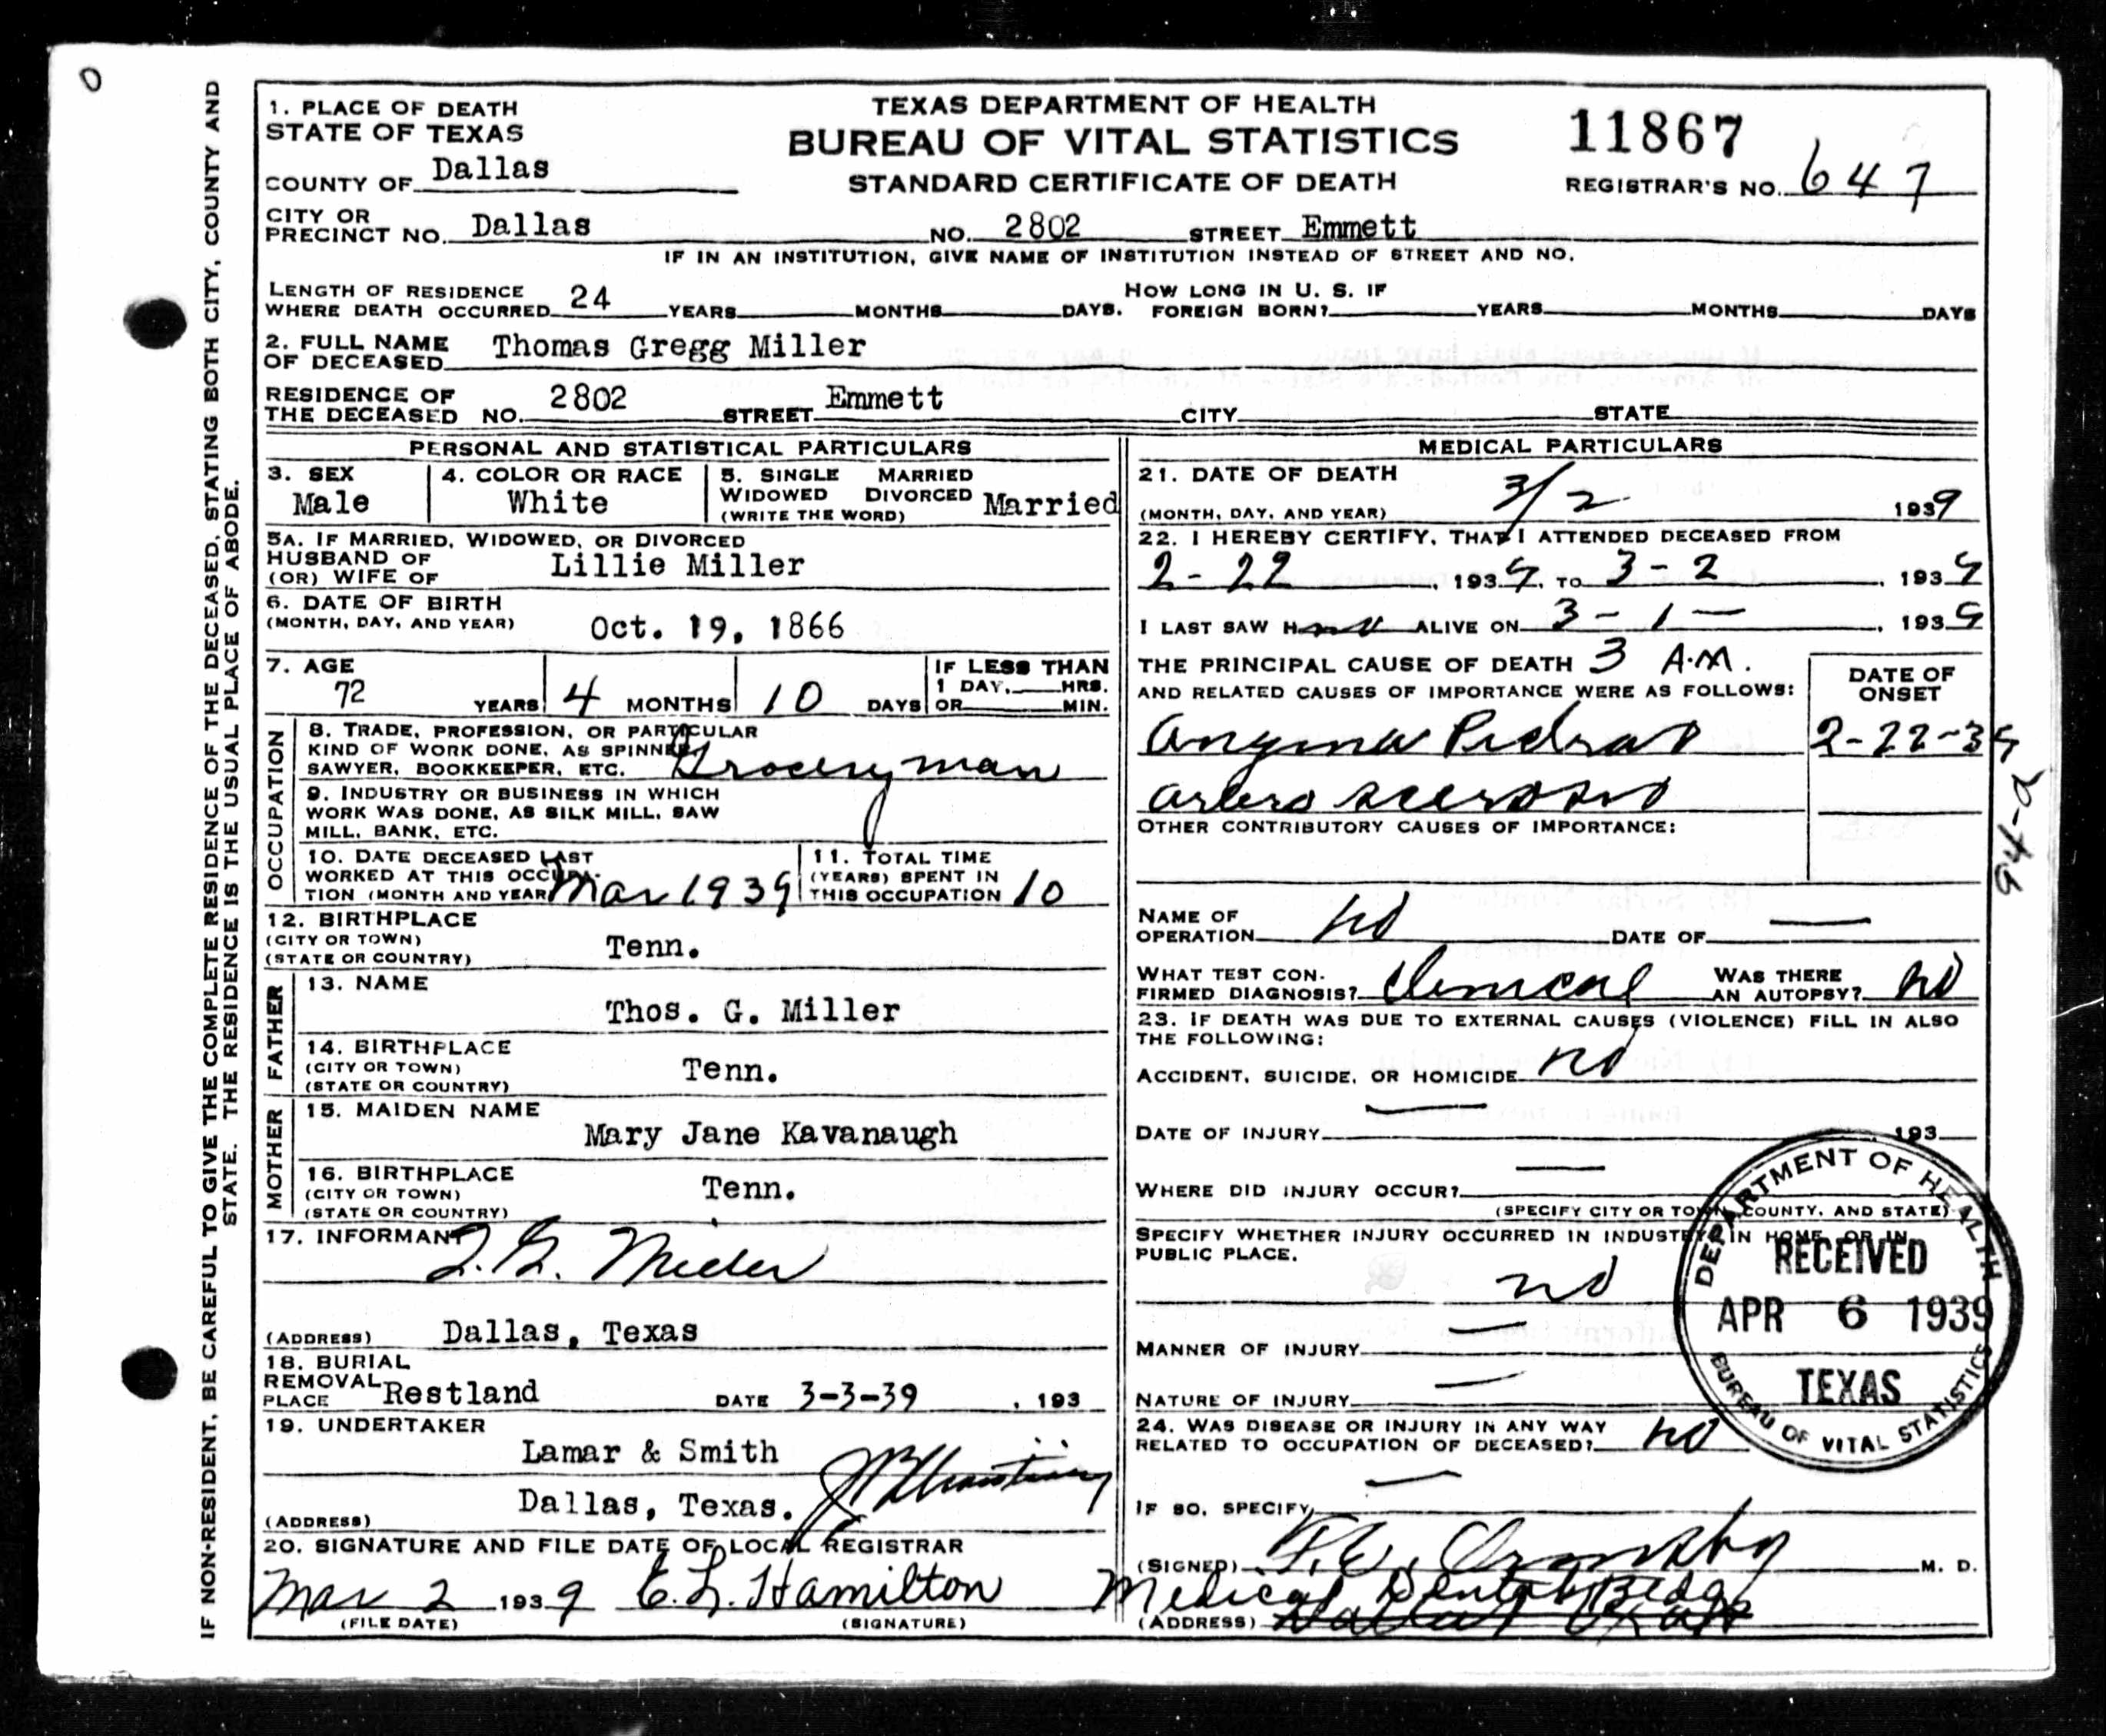 0
IF NON-RESIDENT, BE CAREFUL TO GIVE THE COMPLETE RESIDENCE OF THE DECEASED, STATING BOTH CITY, COUNTY AND
STATE. THE RESIDENCE IS THE USUAL PLACE OF ABODE.
TEXAS DEPARTMENT OF HEALTH
BUREAU OF VITAL STATISTICS
STANDARD CERTIFICATE OF DEATH
11867
REGISTRAR'S NO. 647
1. PLACE OF DEATH
STATE OF TEXAS
COUNTY OF Dallas
CITY OR PRECINCT NO. Dallas NO. 2802 STREET Emmett
IF IN AN INSTITUTION, GIVE NAME OF INSTITUTION INSTEAD OF STREET AND NO.
LENGTH OF RESIDENCE HOW LONG IN U. S. IF
WHERE DEATH OCCURRED 24 YEARS MONTHS DAYS. FOREIGN BORN? YEARS MONTHS DAYS
2. FULL NAME
OF DECEASED Thomas Gregg Miller
RESIDENCE OF
THE DECEASED NO. 2802 STREET Emmett CITY STATE
PERSONAL AND STATISTICAL PARTICULARS
3. SEX
Male
4. COLOR OR RACE
White
5. SINGLE MARRIED
WIDOWED DIVORCED Married
(WRITE THE WORD)
5A. IF MARRIED, WIDOWED, OR DIVORCED
HUSBAND OF
(OR) WIFE OF Lillie Miller
6. DATE OF BIRTH
(MONTH, DAY, AND YEAR) Oct. 19, 1866
7. AGE
72 YEARS 4 MONTHS 10 DAYS
IF LESS THAN
1 DAY, HRS.
OR MIN.
OCCUPATION
8. TRADE, PROFESSION, OR PARTICULAR
KIND OF WORK DONE, AS SPINNER
SAWYER, BOOKKEEPER, ETC. Groceryman
9. INDUSTRY OR BUSINESS IN WHICH
WORK WAS DONE, AS SILK MILL, SAW
MILL, BANK, ETC.
10. DATE DECEASED LAST
WORKED AT THIS OCCUPA-
TION (MONTH AND YEAR) Mar 1939
11. TOTAL TIME
(YEARS) SPENT IN
THIS OCCUPATION 10
12. BIRTHPLACE
(CITY OR TOWN)
(STATE OR COUNTRY) Tenn.
FATHER
13. NAME
Thos. G. Miller
14. BIRTHPLACE
(CITY OR TOWN) Tenn.
(STATE OR COUNTRY)
MOTHER
15. MAIDEN NAME
Mary Jane Kavanaugh
16. BIRTHPLACE
(CITY OR TOWN) Tenn.
(STATE OR COUNTRY)
17. INFORMANT
T. G. Miller
(ADDRESS) Dallas, Texas
18. BURIAL
REMOVAL
PLACE Restland DATE 3-3-39, 193
19. UNDERTAKER
Lamar & Smith
(ADDRESS) Dallas, Texas.
20. SIGNATURE AND FILE DATE OF LOCAL REGISTRAR
Mar 2 1939 E. L. Hamilton
(FILE DATE) (SIGNATURE)
MEDICAL PARTICULARS
21. DATE OF DEATH
(MONTH, DAY, AND YEAR) 3/2 1939
22. I HEREBY CERTIFY, THAT I ATTENDED DECEASED FROM
2-22, 1939, TO 3-2, 1939
I LAST SAW H ALIVE ON 3-1-, 1939
THE PRINCIPAL CAUSE OF DEATH 3 A.M.
AND RELATED CAUSES OF IMPORTANCE WERE AS FOLLOWS:
DATE OF
ONSET
Angina Pectoris 2-22-39
arterio sclerosis
94-a
OTHER CONTRIBUTORY CAUSES OF IMPORTANCE:
NAME OF
OPERATION no DATE OF —
WHAT TEST CON-
FIRMED DIAGNOSIS? Clinical WAS THERE
AN AUTOPSY? no
23. IF DEATH WAS DUE TO EXTERNAL CAUSES (VIOLENCE) FILL IN ALSO
THE FOLLOWING:
ACCIDENT, SUICIDE, OR HOMICIDE no
DATE OF INJURY — 193
WHERE DID INJURY OCCUR? —
(SPECIFY CITY OR TOWN, COUNTY, AND STATE)
SPECIFY WHETHER INJURY OCCURRED IN INDUSTRY, IN HOME, OR IN
PUBLIC PLACE.
no
MANNER OF INJURY —
NATURE OF INJURY —
24. WAS DISEASE OR INJURY IN ANY WAY
RELATED TO OCCUPATION OF DECEASED? no
IF SO, SPECIFY —
(SIGNED) Ormsby M. D.
Medical Dental Bldg
(ADDRESS) Dallas Texas
DEPARTMENT OF HEALTH
RECEIVED
APR 6 1939
TEXAS
BUREAU OF VITAL STATISTICS